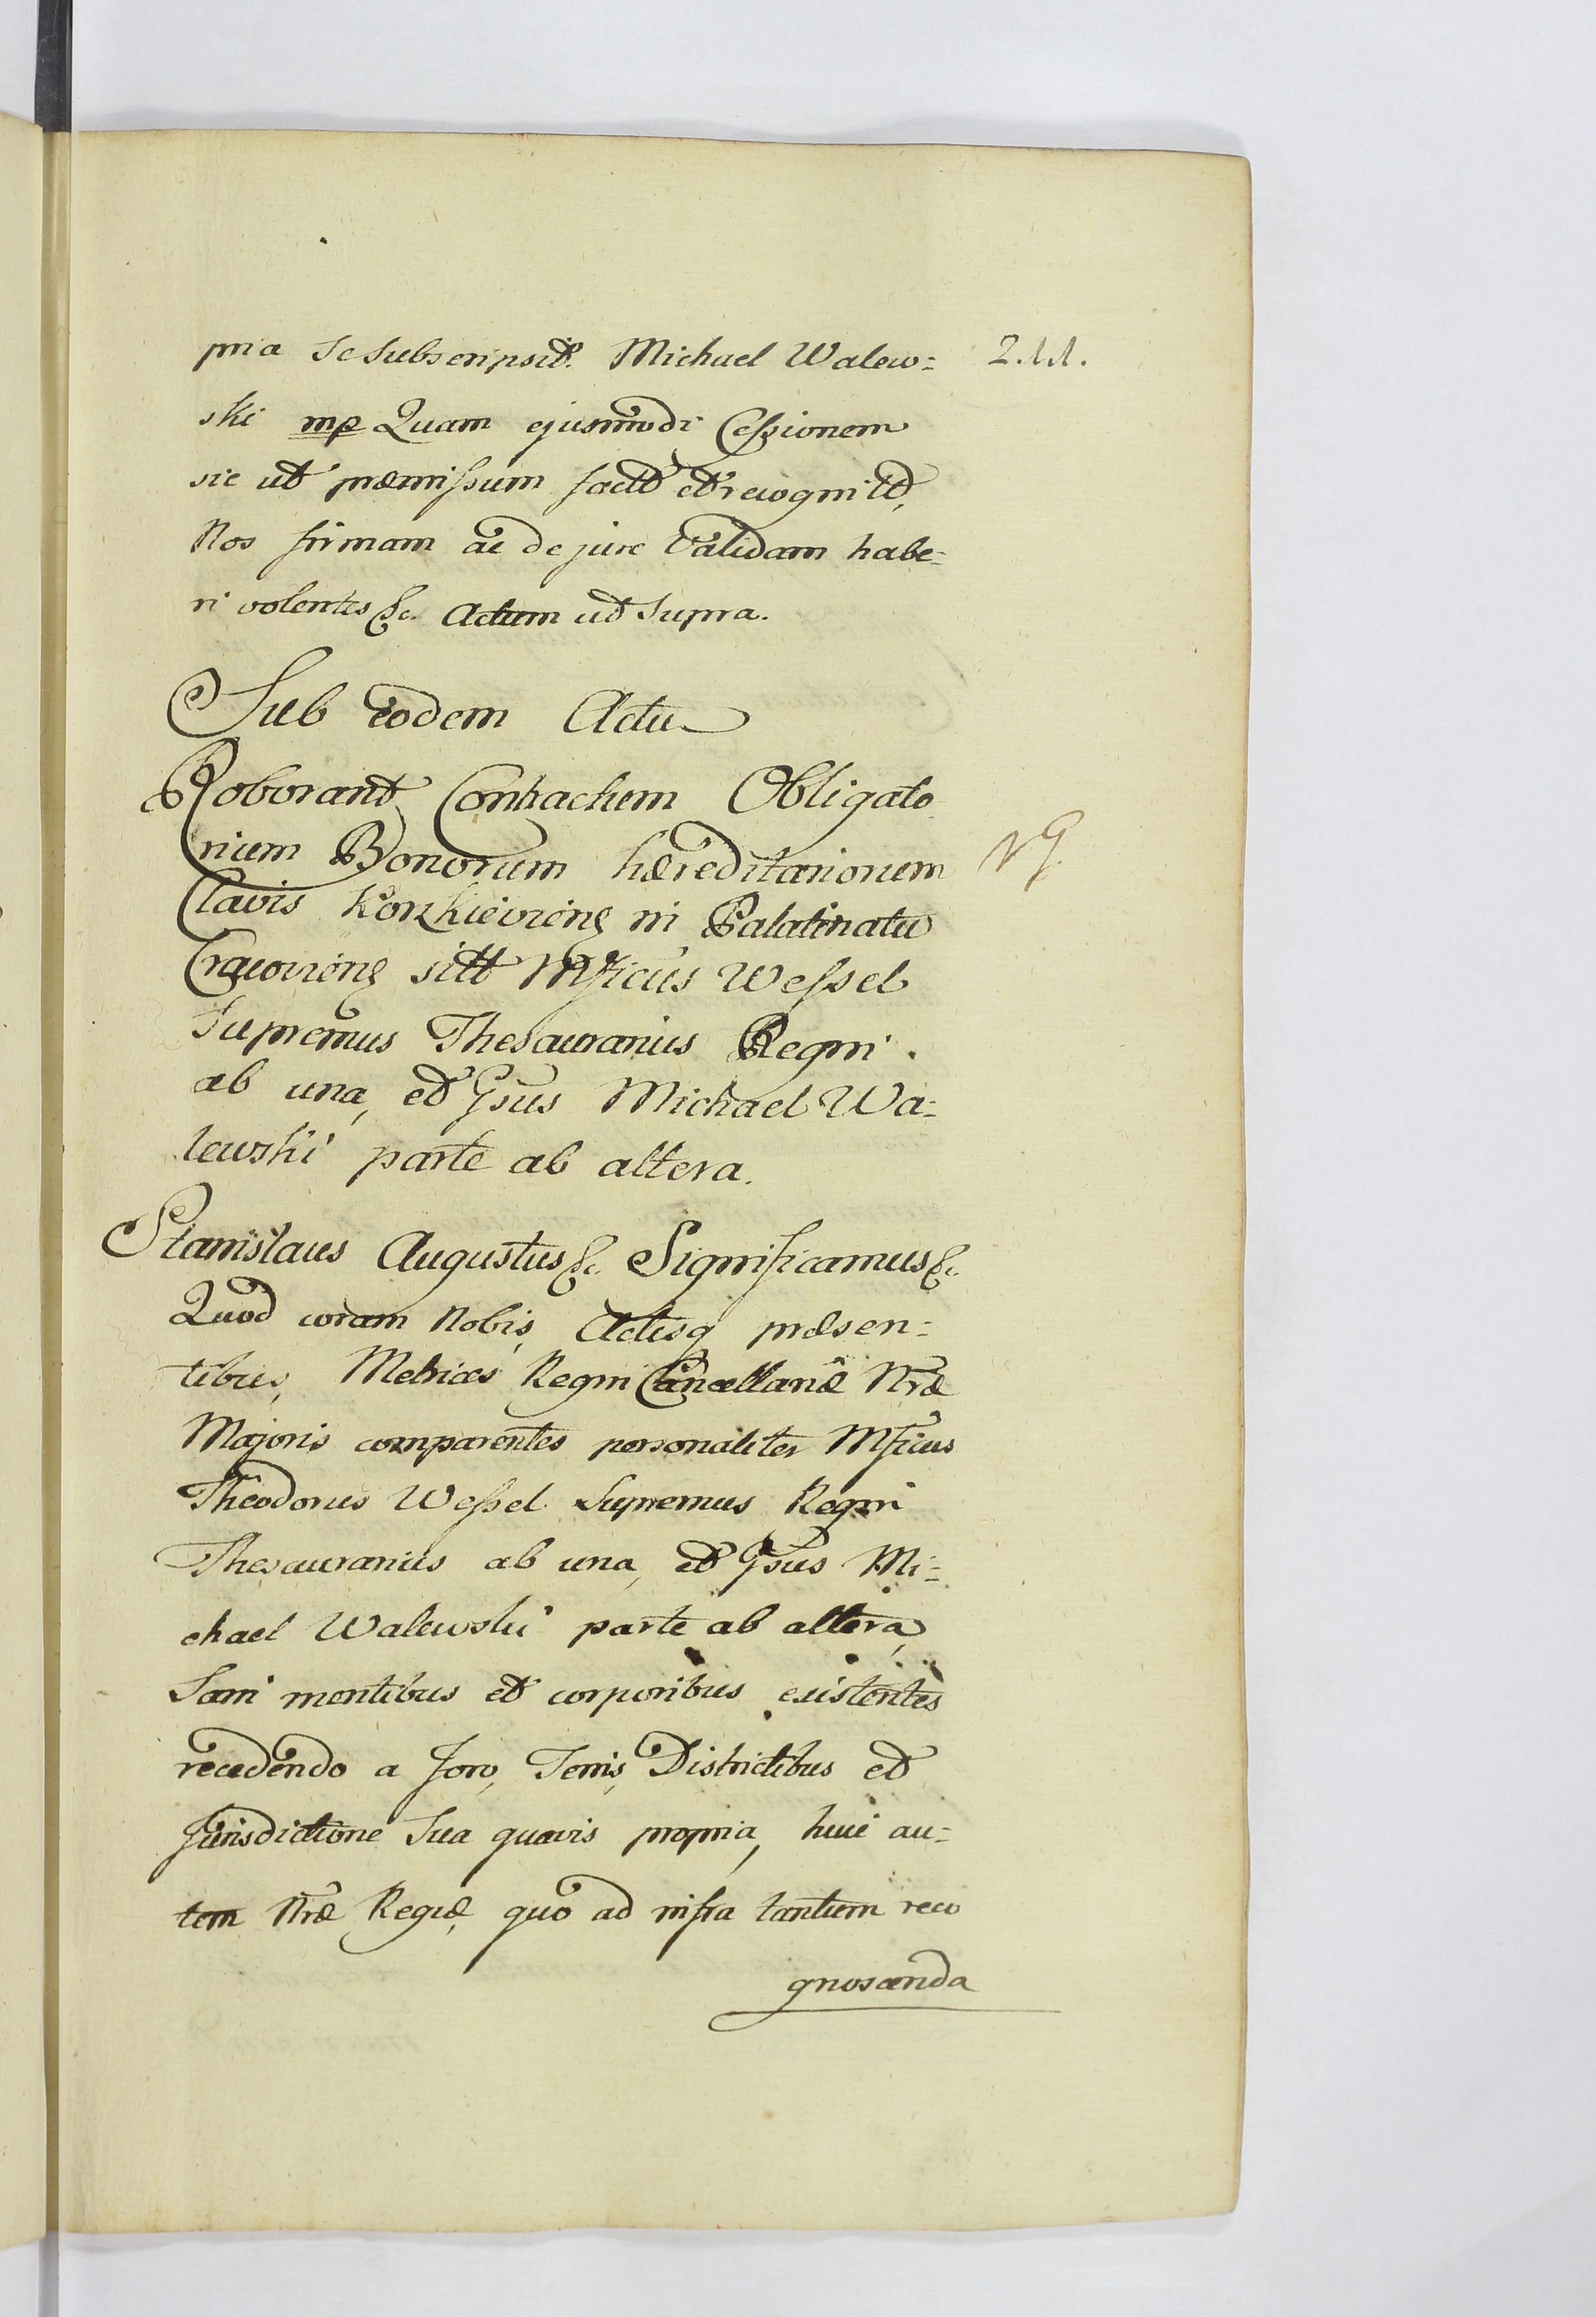 pria se subscripsit. Michael Walew=
ski mp Quam ejusmodi Cessionem
sic ut præmissum factt et recognitt,
Nos firmam ac de jure validam habe=
ri volentes &c. Actum ut supra.
Sub eodem Actu
Roborant Contractum Obligato
rium Bonorum hæreditariorum
Clavis in Palatinatu
Cracovieng sitt Mficus Wessel
Supremus Thesaurarius Regni.
ab una, et Gsus Michael Wa=
lewski parte ab altera.
Stanislaus Augustus &c. Significamus &c.
Quod coram Nobis, Actisq præsen=
tibus, Metrices Regni Cancellariæ Nræ
Majoris comparentes personaliter Mficus
Theodorus Wessel Supremus Regni
Thesaurarius ab una, et Gsus Mi=
chael Walewski parte ab altera,
Sani mentibus et corporibus existentes
recedendo a foro, Terris, Districtibus et
Jurisdictione Sua quavis propria, huic au=
tem Nræ Regiæ, quo ad infra tantum reco
gnoscenda